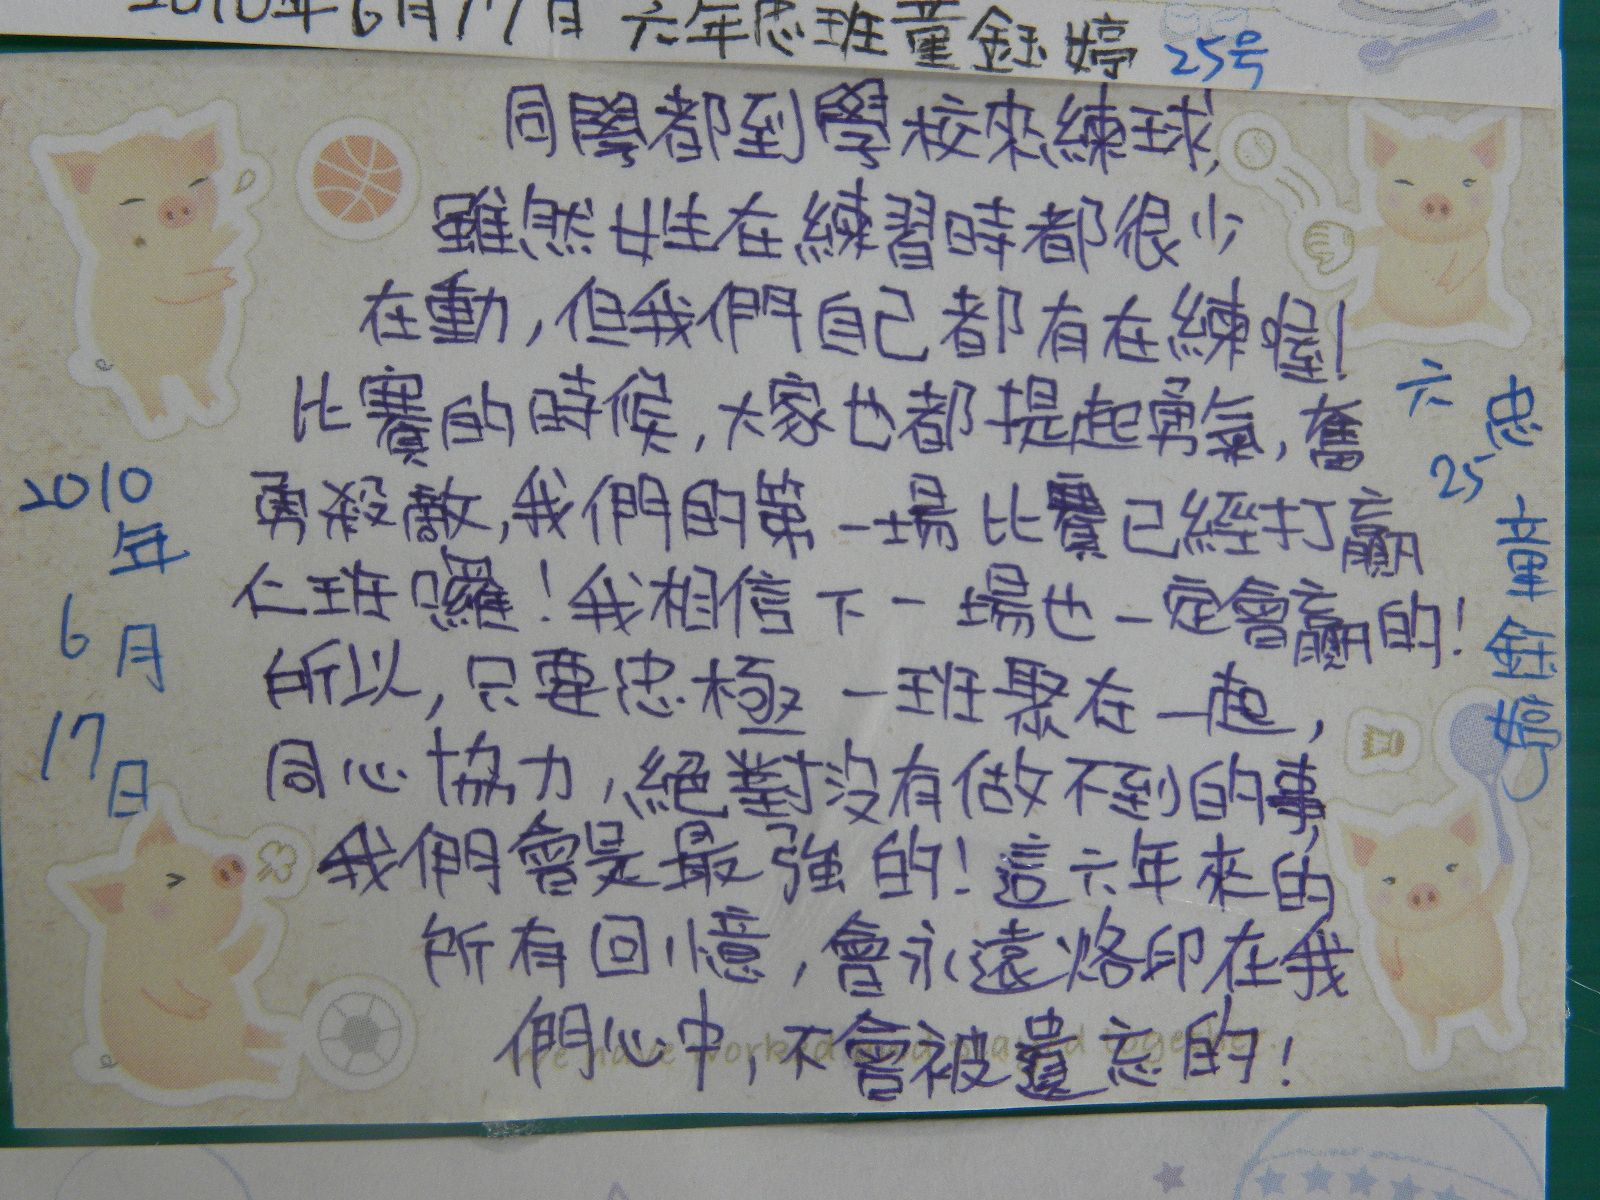 2010年6月17日 六年忠班童鈺婷 25号
同學都到學校來練球,
雖然女生在練習時都很少
在動,但我們自己都有在練喔!
比賽的時候,大家也都提起勇氣,奮
勇殺敵,我們的第一場比賽已經打贏
仁班囉!我相信下一場也一定會贏的!
所以,只要忠極一班聚在一起,
同心協力,絕對沒有做不到的事,
我們會是最強的!這六年來的
所有回憶,會永遠烙印在我
們心中,不會被遺忘的!
2010
年
6月
17日
六忠
25
童鈺婷